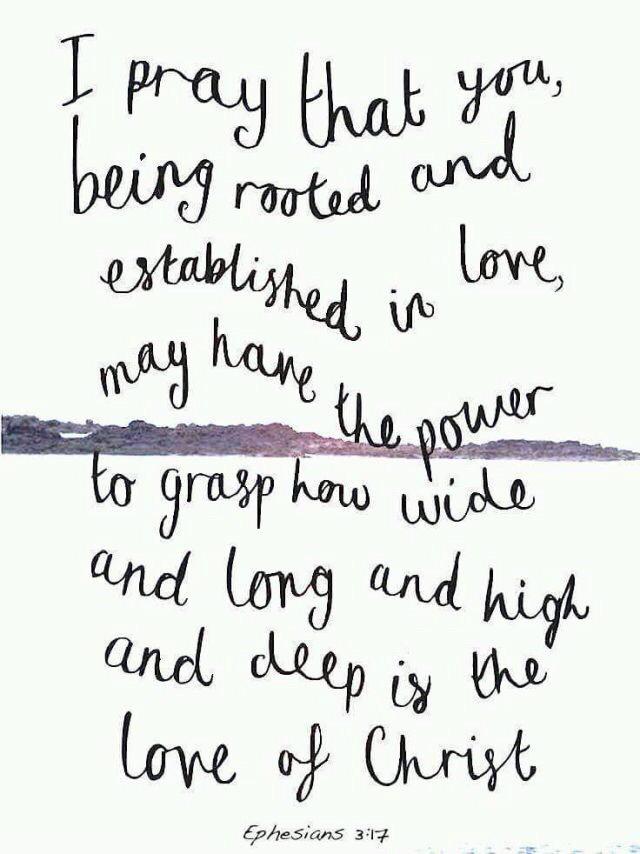 I pray that you,
being rooted and
established in love,
may have the power
to grasp how wide
and long and high
and deep is the
love of Christ
Ephesians 3:17